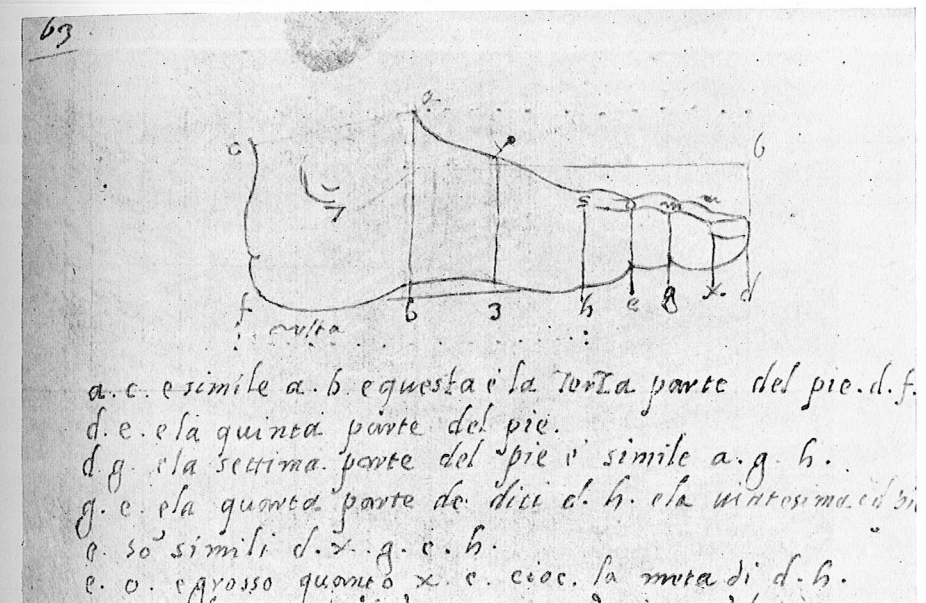 63
a
c
b
p
7
s o m n
f
b 3 h e g x d
a. c. e simile a. b. e questa e la Terza parte del pie. d. f.
d. e. e la quinta parte del pie.
d. g. e la settima parte del pie e simile a. g. h.
g. e. e la quarta parte de diti d. h. e la
e. so simili d. x. g. e. h.
e. o. e grosso quanto x. e. cioe. la meta di d. h.